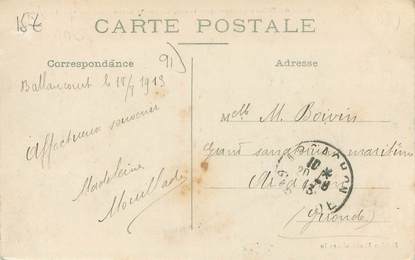 15€
CARTE POSTALE
Correspondance
91)
Adresse
Ballancourt le 18/7 1913
Affectueux souvenir
Madeleine
Melle M. Boivin
Grand sanatorium maritime
(Gironde)